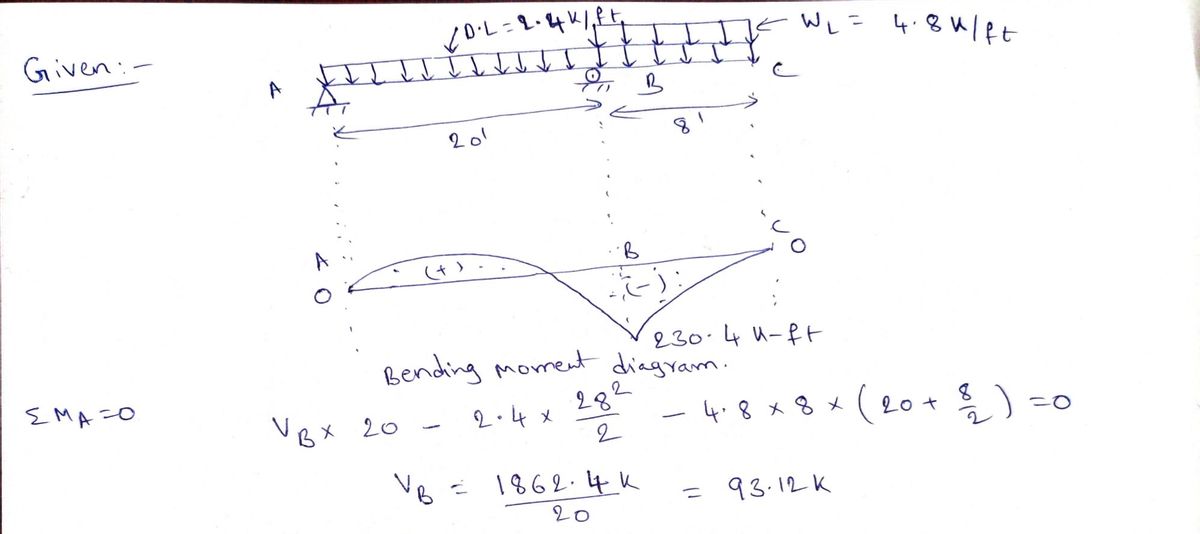 D.L = 2.4 K/ft
W_L = 4.8 K/ft
Given :-
A
B
C
20'
8'
A
B
C
O
(+)
(-)
O
230.4 K-ft
Bending moment diagram.
Σ M_A = 0
V_B × 20 - 2.4 × 28²/2 - 4.8 × 8 × (20 + 8/2) = 0
V_B = 1862.4 K / 20 = 93.12 K